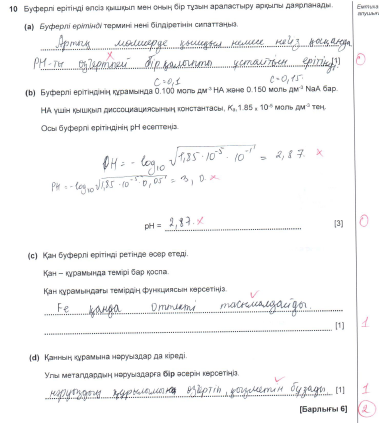 10 Буферлі ерітінді әлсіз қышқыл мен оның бір тұзын араластыру арқылы даярланады.
Емтихан алушының
(a) Буферлі ерітінді термині нені білдіретінін сипаттаңыз.
Артық мөлшерде қышқыл немесе негіз қосқанда
PH-ты өзгертпей бірқалыпты ұстайтын ерітінді [1]
0
C=0,1 C=0,15
(b) Буферлі ерітіндінің құрамында 0.100 моль дм⁻³ HA және 0.150 моль дм⁻³ NaA бар.
HA үшін қышқыл диссоциациясының константасы, Kₐ, 1.85 x 10⁻⁵ моль дм⁻³ тең.
Осы буферлі ерітіндінің pH есептеңіз.
PH = - log₁₀ √1,85·10⁻⁵·10⁻¹ = 2,87. x
PH = - log₁₀ √1,85·10⁻⁵·0,05 = 3,0. x
pH = 2,87. x [3]
0
(c) Қан буферлі ерітінді ретінде әсер етеді.
Қан – құрамында темірі бар қоспа.
Қан құрамындағы темірдің функциясын көрсетіңіз.
Fe қанда оттекті тасымалдайды.
[1]
1
(d) Қанның құрамына нәруыздар да кіреді.
Улы металдардың нәруыздарға бір әсерін көрсетіңіз.
нәруыздың құрылымына өзгертіп, қызметін бұзады [1]
1
[Барлығы 6]
2